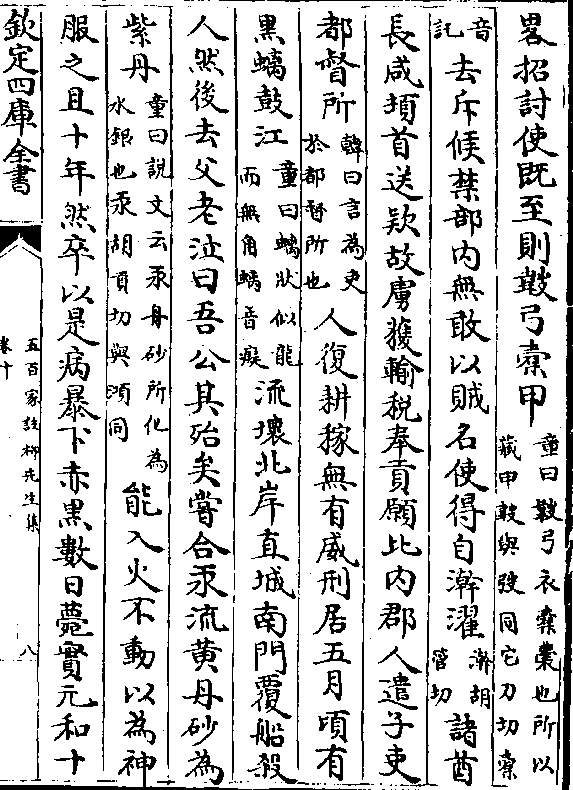 畧招討使既至則韔弓櫜甲童曰韔弓衣櫜囊也所以
藏甲韔與弢同它刀切櫜
音
託去斥候禁部内無敢以賊名使得自澣濯澣胡
管切諸酋
長咸頫首送欵故虜獲輸税奉貢願比内郡人遣子吏
都督所韓曰言為吏
於都督所也人復耕稼無有威刑居五月頃有
黒螭鼓江童曰螭狀似龍
而無角螭音癡流壊北岸直城南門覆船殺
人然後去父老泣曰吾公其殆矣嘗合汞流黄丹砂為
紫丹童曰説文云汞丹砂所化為
水銀也汞胡貢切與澒同能入火不動以為神
服之且十年然卒以是病暴下赤黒數日薨實元和十
欽定四庫全書
五百家註柳先生集
卷十
八